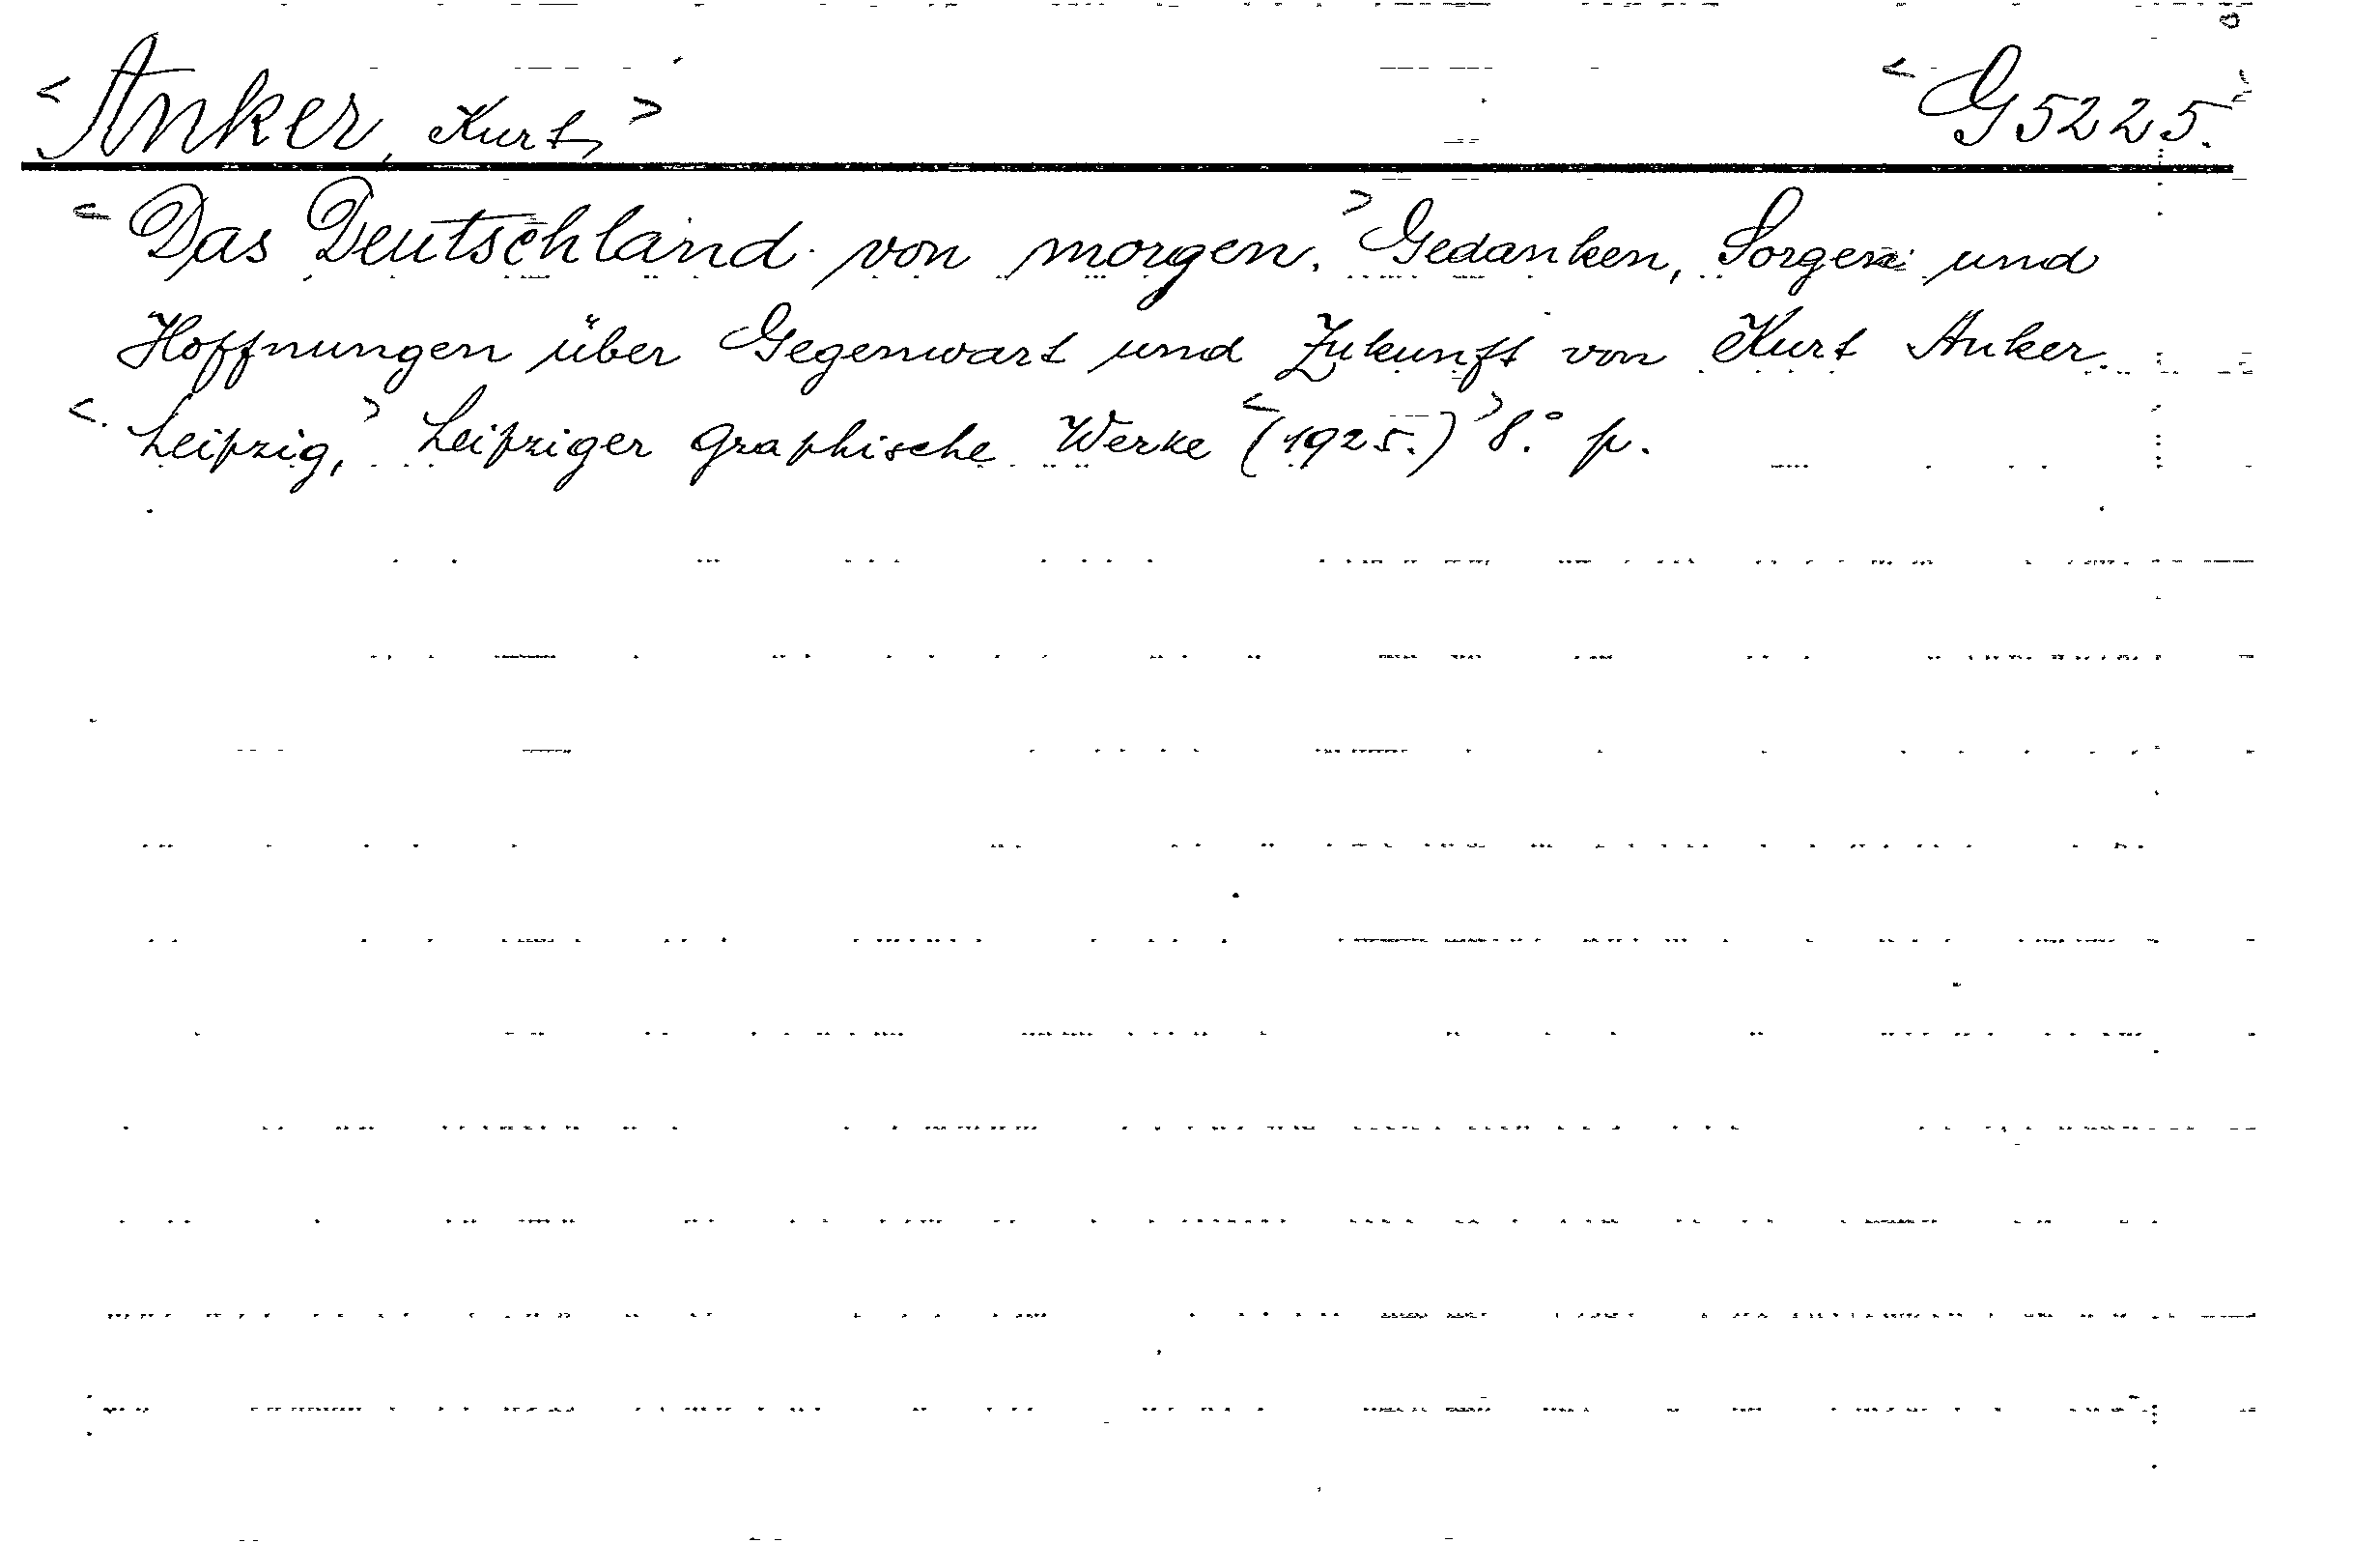 <Anker, Kurt,> <G 5225.>
<Das Deutschland von morgen.> Gedanken, Sorgen und
Hoffnungen über Gegenwart und Zukunft von Kurt Anker.
<Leipzig,> Leipziger Graphische Werke <(1925.)> 8.° p.